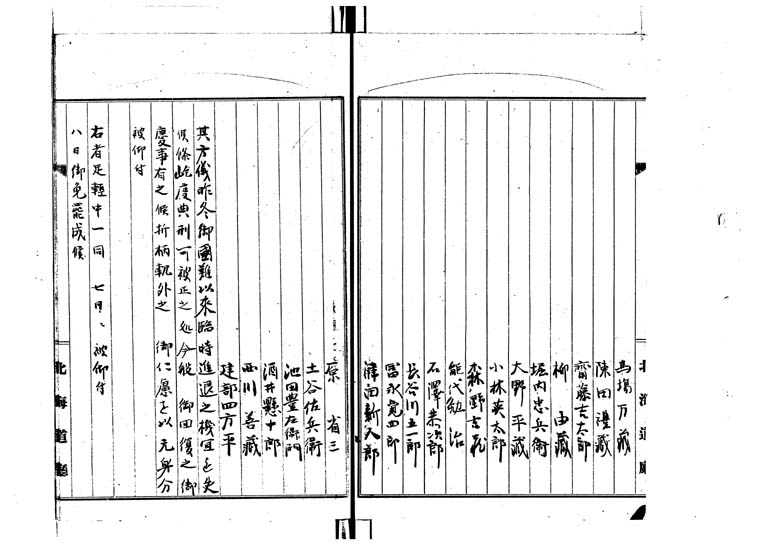 馬場万蔵
陳田禮蔵
齋藤吉太郎
柳 由蔵
堀内忠兵衛
大野平蔵
小林英太郎
森野
能代勉治
石澤恭次郎
長谷川五一郎
冨永寛四郎
津田新八郎
原 省三
土谷佐兵衛
池田豊左衛門
酒井懸十郎
西川 善蔵
建部四方平
其方儀昨冬御國難以来臨時進退之機宜を失
候條屹度典刑可被正之処今般 御回復之御
慶事有之候折柄軌外之 御仁慮を以元身分
被仰付
右者足軽中一同 七月 被仰付
八日御免罷成候
北海道廳
北海道廳